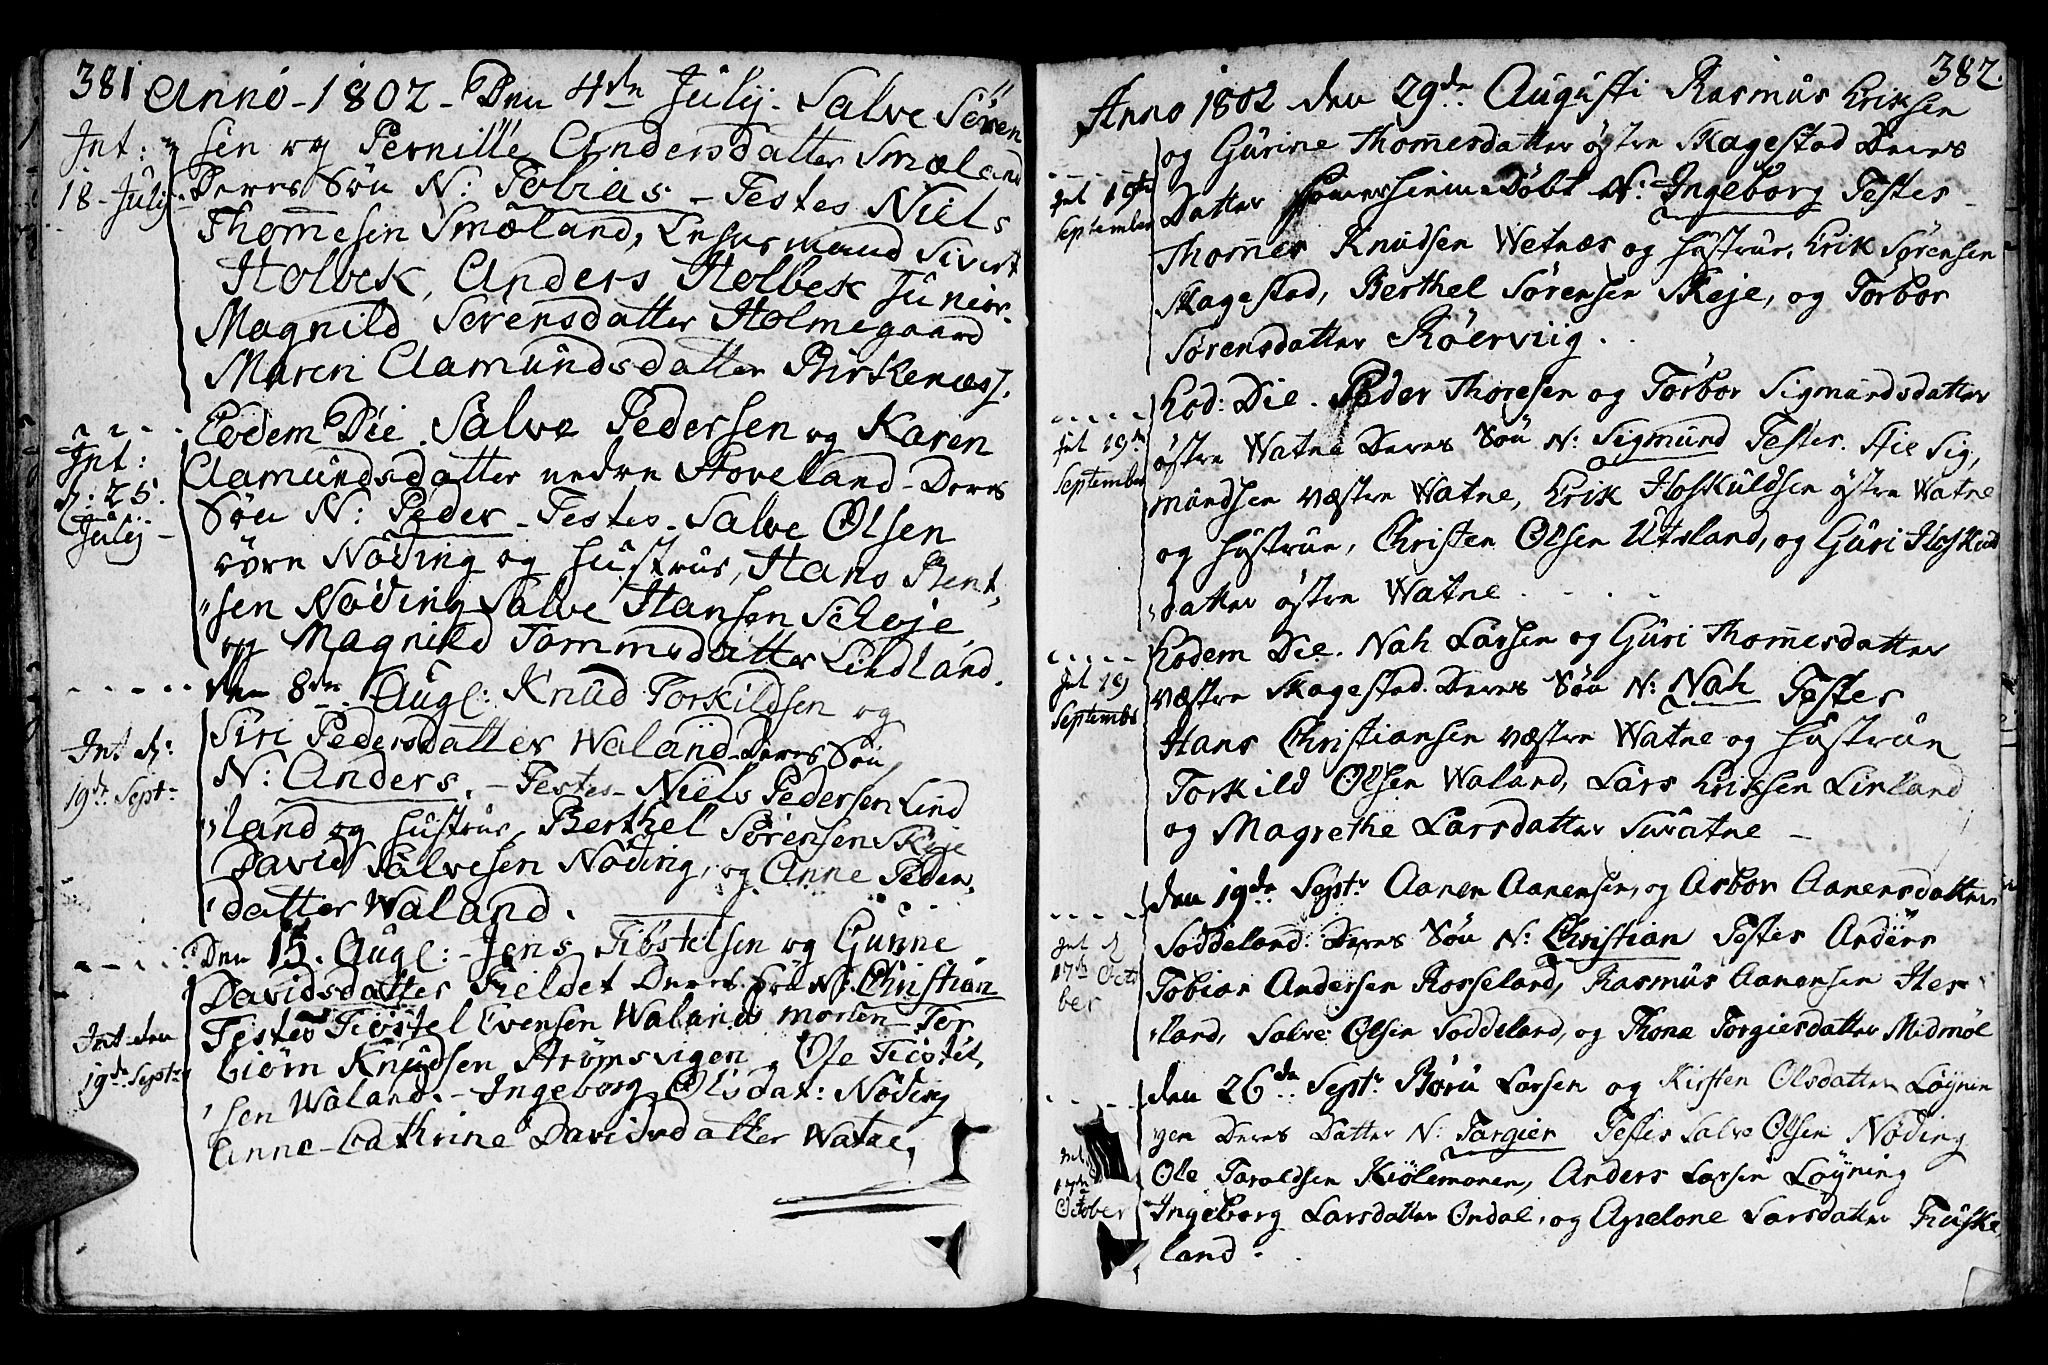 381 Anno - 1802 - Den 4de Julij - Salve Sören
Int:
18 - Julij -
sen og Pernille Andersdatter Smæland
Deres Sön N: Tobias - Testes Niels
Thomesen Smæland, Lensmand Sivert
Holbek, Anders Holbek Junior.
Magnild Sørensdatter Holmegaard
Maren Aamundsdatter Birkenæs.
Int:
d: 25.
Julij -
Eodem Die. Salve Pedersen og Karen
Aamundsdatter nedre Stoveland - Deres
Sön N: Peder - Testes - Salve Olsen
övre Nöding og Hustrue, Hans Bent,
"sen Nöding Salve Hansen Schoje
og Magnild Tommesdatter Lindland.
Int d:
19de Septr
den 8de Augl: Knud Torkildsen og
Siri Pedersdatter Waland Deres Sön
N: Anders. - Testes - Niels Pedersen Lind
"land og Hustrue, Berthel Sörensen Skeje
David Salvesen Nöding, og Anne Peders,
'datter Waland.
Int den
19de Septr
Den 15. Augl: - Jens Tiöstelsen og Gunne
Davidsdatter Fieldet Deres Sön N: Christian
Testes Tiöstel Evensen Waland morten - Tor
biörn Knudsen Strömsvigen, Ole Tiöstel,
'sen Waland. - Ingeborg Olsdat: Nöding
Anne - Cathrine Davidsdatter Watne,
382.
Anno 1802 den 29de Augusti Rasmus Eriksen
Int 19de
September
og Gurine Thomesdatter östre Skagestad Deres
Datter Hiemedöbt N: Ingeborg Testes -
Thomes Knudsen Wetnæs og Hustrue, Erik Sörensen
Skagestad, Berthel Sörensen Skeje, og Torbor
Sörensdatter Röerviig.
Int 19de
September
Eod: Die. Peder Thoresen og Torbor Sigmundsdatter
östre Watne Deres Sön N: Sigmund Testes. Stie Sig,
mundsen væstre Watne, Erik Hoskuldsen östre Watne
og Hustrue, Christen Olsen Utsland, og Guri Hoskuld
'datter östre Watne.
Int 19
Septembr
Eodem Die. Nah Larsen og Guri Thomesdatter
væstre Skagestad. Deres Sön N: Nah Testes
Hans Christiansen væstre Watne og Hustrue
Torkild Olsen Waland, Lars Eriksen Linland
og Magrethe Larsdatter Suvatne -
Int d
17de Octo
ber
den 19de Septr Aanen Aanensen, og Asbor Aanensdatter
Soddeland: Deres Sön N: Christian Testes Anders
Tobias Andersen Rosseland, Rasmus Aanensen Stes
'land, Salve Olsen Soddeland, og Thone Torgiesdatter Midmöl
17de
October
den 26de Septr Börü Larsen og Kirsten Olsdatter Löynin
gen Deres Datter N: Targier Testes Salve Olsen Nöding
Ole Taroldsen Kiölemonen, Anders Larsen Löyning
Ingeborg Larsdatter Ondal, og Apelone Larsdatter Fiuske
land.